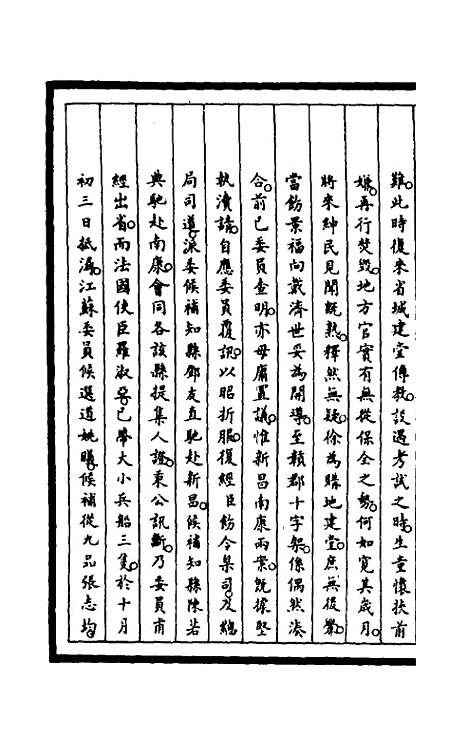 難此時復來省城建堂傳教設遇考試之時生童懷挾前
嫌再行焚毀地方官實有無從保全之勢何如寬其歲月
將來紳民見聞既熟釋然無疑徐為購地建堂庶無後釁
當飭景福向戴濟世妥為開導至贛郡十字架係偶然湊
合前已委員查明亦毋庸置議惟新昌南康兩案既據堅
執瀆請自應委員覆訊以昭折服復經臣飭令臬司及總
局司道派委候補知縣鄧友直馳赴新昌候補知縣陳若
典馳赴南康會同各該縣提集人證秉公訊斷乃委員甫
經出省而法國使臣羅淑亞已帶大小兵船三隻於十月
初三日抵潯江蘇委員候選道姚曦候補從九品張志均